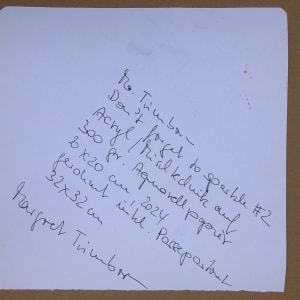 Ma. Trimbor
Don't forget to sparkle #2
Acryl / Mischtechnik auf
300 gr. Aquarellpapier
20 cm, 2024
gerahmt inkl. Passepartout
32x32 cm
Margret Trimbor